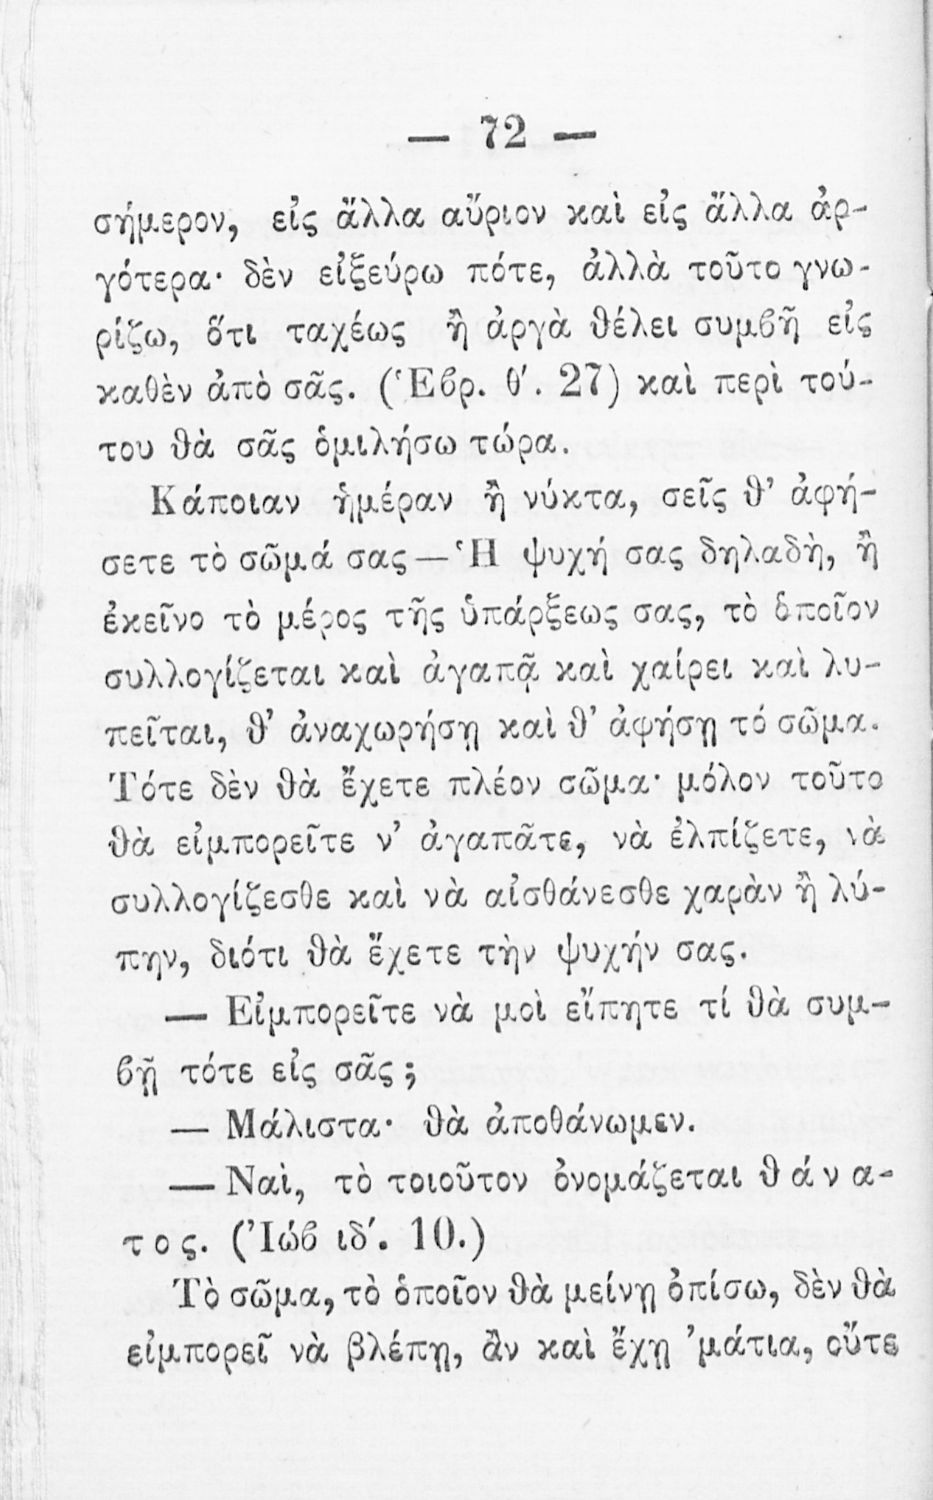 — 72 —
σήμερον, εἰς ἄλλα αὔριον καὶ εἰς ἄλλα ἀρ-
γότερα· δὲν εἰξεύρω πότε, ἀλλὰ τοῦτο γνω-
ρίζω, ὅτι ταχέως ἢ ἀργὰ θέλει συμβῆ εἰς
καθὲν ἀπὸ σᾶς. (Ἑβρ. θ'. 27) καὶ περὶ τού-
του θὰ σᾶς ὁμιλήσω τώρα.
Κάποιαν ἡμέραν ἢ νύκτα, σεῖς θ' ἀφή-
σετε τὸ σῶμά σας — Ἡ ψυχή σας δηλαδὴ, ἢ
ἐκεῖνο τὸ μέρος τῆς ὑπάρξεως σας, τὸ ὁποῖον
συλλογίζεται καὶ ἀγαπᾷ καὶ χαίρει καὶ λυ-
πεῖται, θ' ἀναχωρήσῃ καὶ θ' ἀφήσῃ τό σῶμα.
Τότε δὲν θὰ ἔχετε πλέον σῶμα· μόλον τοῦτο
θὰ εἰμπορεῖτε ν' ἀγαπᾶτε, νὰ ἐλπίζετε, νὰ
συλλογίζεσθε καὶ νὰ αἰσθάνεσθε χαρὰν ἢ λύ-
πην, διότι θὰ ἔχετε τὴν ψυχήν σας.
— Εἰμπορεῖτε νὰ μοὶ εἴπητε τί θὰ συμ-
βῇ τότε εἰς σᾶς;
— Μάλιστα· θὰ ἀποθάνωμεν.
— Ναὶ, τὸ τοιοῦτον ὀνομάζεται θ ά ν α-
τ ο ς. (Ἰὼβ ιδ'. 10.)
Τὸ σῶμα, τὸ ὁποῖον θὰ μείνῃ ὀπίσω, δὲν θὰ
εἰμπορεῖ νὰ βλέπῃ, ἂν καὶ ἔχῃ 'μάτια, οὔτε